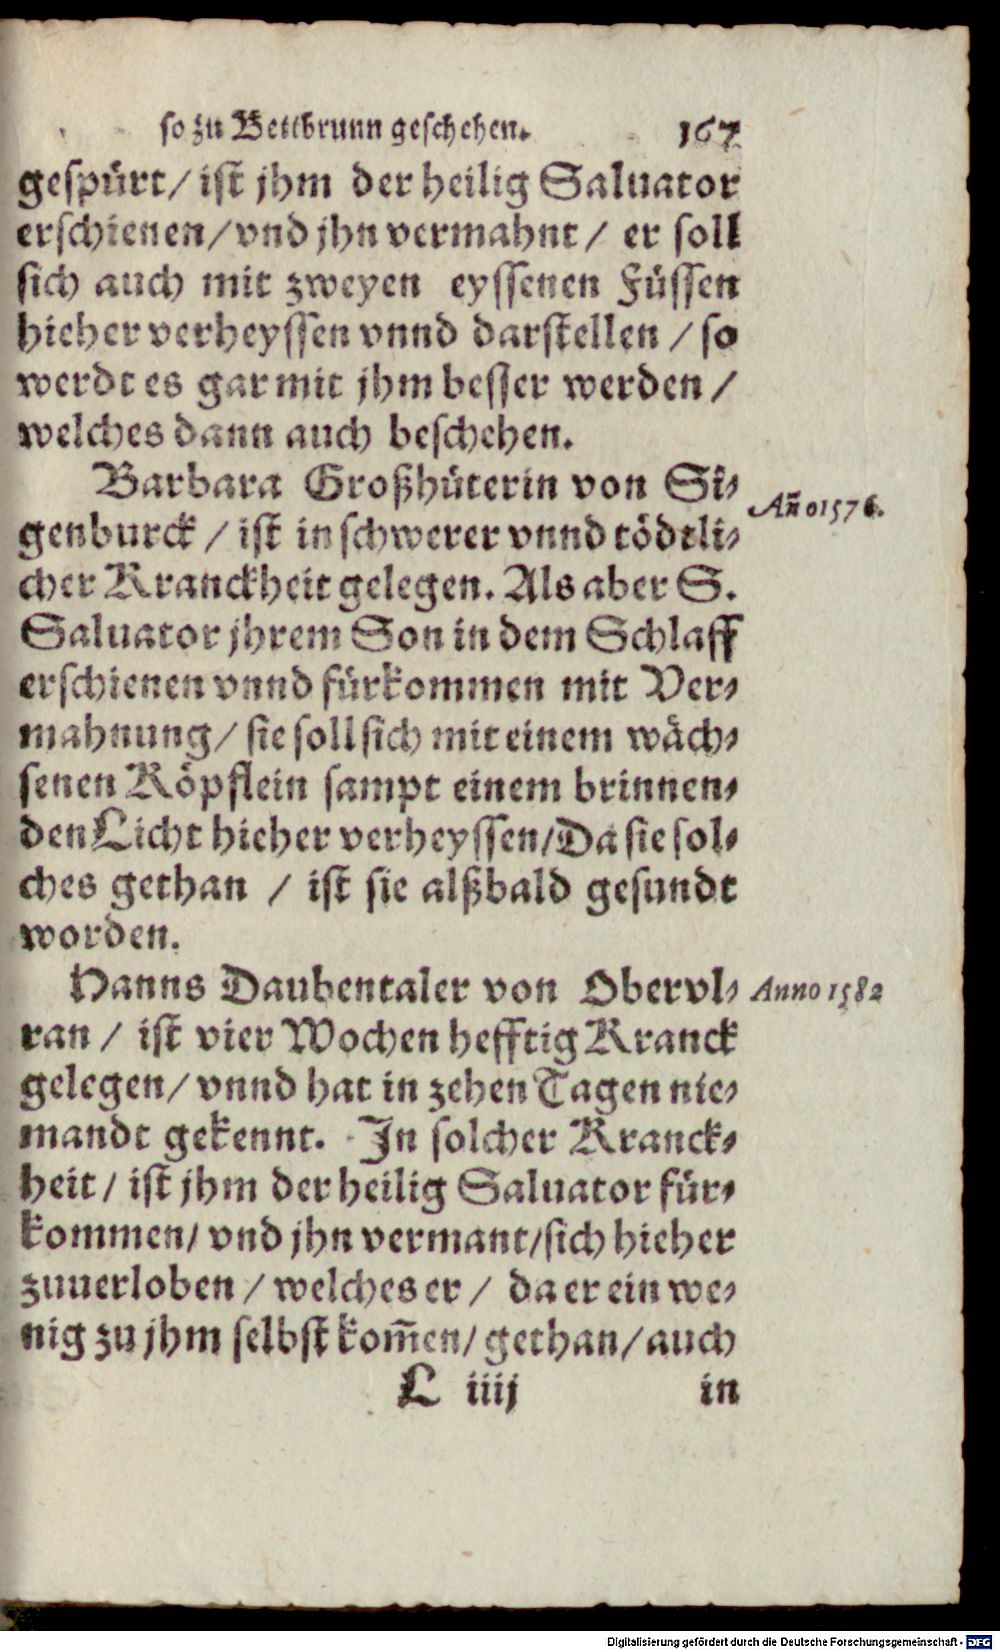 so zu Bettbrunn geschehen. 167
gespürt/ ist jhm der heilig Saluator
erschienen/ vnd jhn vermahnt/ er soll
sich auch mit zweyen eyssenen Füssen
hieher verheyssen vnnd darstellen / so
werdt es gar mit jhm besser werden /
welches dann auch beschehen.
Barbara Großhüterin von Si-
Añ o 1576.
genburck / ist in schwerer vnnd tödtli-
cher Kranckheit gelegen. Als aber S.
Saluator jhrem Son in dem Schlaff
erschienen vnnd fürkommen mit Ver-
mahnung/ sie soll sich mit einem wäch-
senen Köpflein sampt einem brinnen-
den Licht hieher verheyssen/ Da sie sol-
ches gethan / ist sie alßbald gesundt
worden.
Hanns Daubentaler von Obervl-
Anno 1582
ran / ist vier Wochen hefftig Kranck
gelegen/ vnnd hat in zehen Tagen nie-
mandt gekennt. In solcher Kranck-
heit/ ist jhm der heilig Saluator für-
kommen/ vnd jhn vermant/ sich hieher
zuuerloben / welches er / da er ein we-
nig zu jhm selbst kom̃en/ gethan/ auch
L iiij in
Digitalisierung gefördert durch die Deutsche Forschungsgemeinschaft - DFG